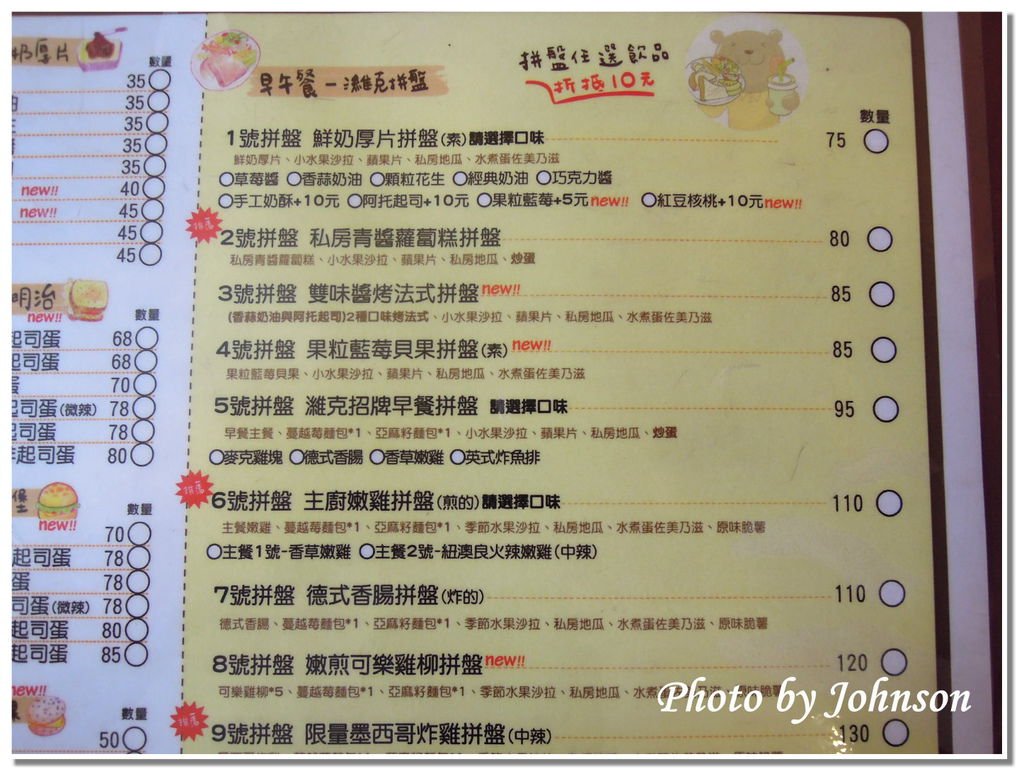 奶厚片
數量
35
35
35
35
35
new!! 40
new!! 45
45
45
明治
new!!
數量
起司蛋 68
起司蛋 68
蛋 70
起司蛋(微辣) 78
起司蛋 78
起司蛋 80
堡
new!!
數量
70
起司蛋 78
蛋 78
司蛋(微辣) 78
起司蛋 80
起司蛋 85
new!!
數量
50
早午餐－濰克拼盤
拼盤任選飲品
折抵10元
數量
1號拼盤 鮮奶厚片拼盤(素)請選擇口味 75
鮮奶厚片、小水果沙拉、蘋果片、私房地瓜、水煮蛋佐美乃滋
○草莓醬 ○香蒜奶油 ○顆粒花生 ○經典奶油 ○巧克力醬
○手工奶酥+10元 ○阿托起司+10元 ○果粒藍莓+5元new!! ○紅豆核桃+10元new!!
推薦
2號拼盤 私房青醬蘿蔔糕拼盤 80
私房青醬蘿蔔糕、小水果沙拉、蘋果片、私房地瓜、炒蛋
3號拼盤 雙味醬烤法式拼盤new!! 85
(香蒜奶油與阿托起司)2種口味烤法式、小水果沙拉、蘋果片、私房地瓜、水煮蛋佐美乃滋
4號拼盤 果粒藍莓貝果拼盤(素)new!! 85
果粒藍莓貝果、小水果沙拉、蘋果片、私房地瓜、水煮蛋佐美乃滋
5號拼盤 濰克招牌早餐拼盤 請選擇口味 95
早餐主餐、蔓越莓麵包*1、亞麻籽麵包*1、小水果沙拉、蘋果片、私房地瓜、炒蛋
○麥克雞塊 ○德式香腸 ○香草嫩雞 ○英式炸魚排
推薦
6號拼盤 主廚嫩雞拼盤(煎的)請選擇口味 110
主餐嫩雞、蔓越莓麵包*1、亞麻籽麵包*1、季節水果沙拉、私房地瓜、水煮蛋佐美乃滋、原味脆薯
○主餐1號-香草嫩雞 ○主餐2號-紐澳良火辣嫩雞(中辣)
7號拼盤 德式香腸拼盤(炸的) 110
德式香腸、蔓越莓麵包*1、亞麻籽麵包*1、季節水果沙拉、私房地瓜、水煮蛋佐美乃滋、原味脆薯
8號拼盤 嫩煎可樂雞柳拼盤new!! 120
可樂雞柳*5、蔓越莓麵包*1、亞麻籽麵包*1、季節水果沙拉、私房地瓜、水煮蛋佐美乃滋、原味脆薯
推薦
9號拼盤 限量墨西哥炸雞拼盤(中辣) 130
Photo by Johnson